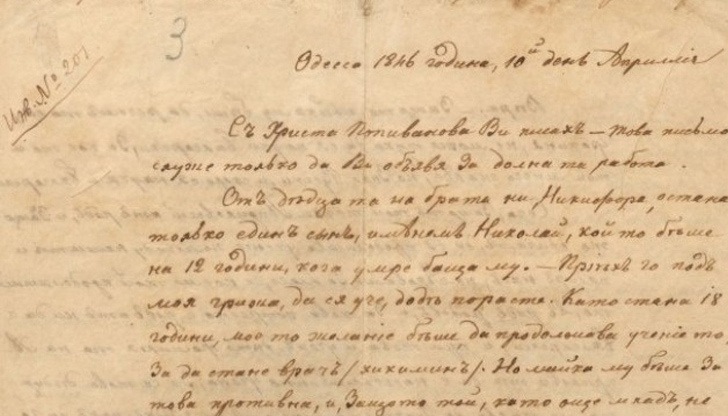 3
Инв. № 201
Одесса 1846 година, 10й день Априллiя
Съ Христа Ппиванова Ви писахъ — това письмо
служе только да Ви объявя за долна та работа.
Отъ дѣдца та на брата ни Никифора, остана
только единъ сынъ, имѣнемъ Николай, кой то бѣше
на 12 години, кога умре баща му. — Прiѣхъ го подъ
моя грижа, да ся уче, додѣ порасте. Като стана 18
години, мое то желанiе бѣше да продолжава ученiе то,
за да стане врачъ /хикиминъ/. Но майка му бѣше за
това противна, и, защото той, като още младъ, не